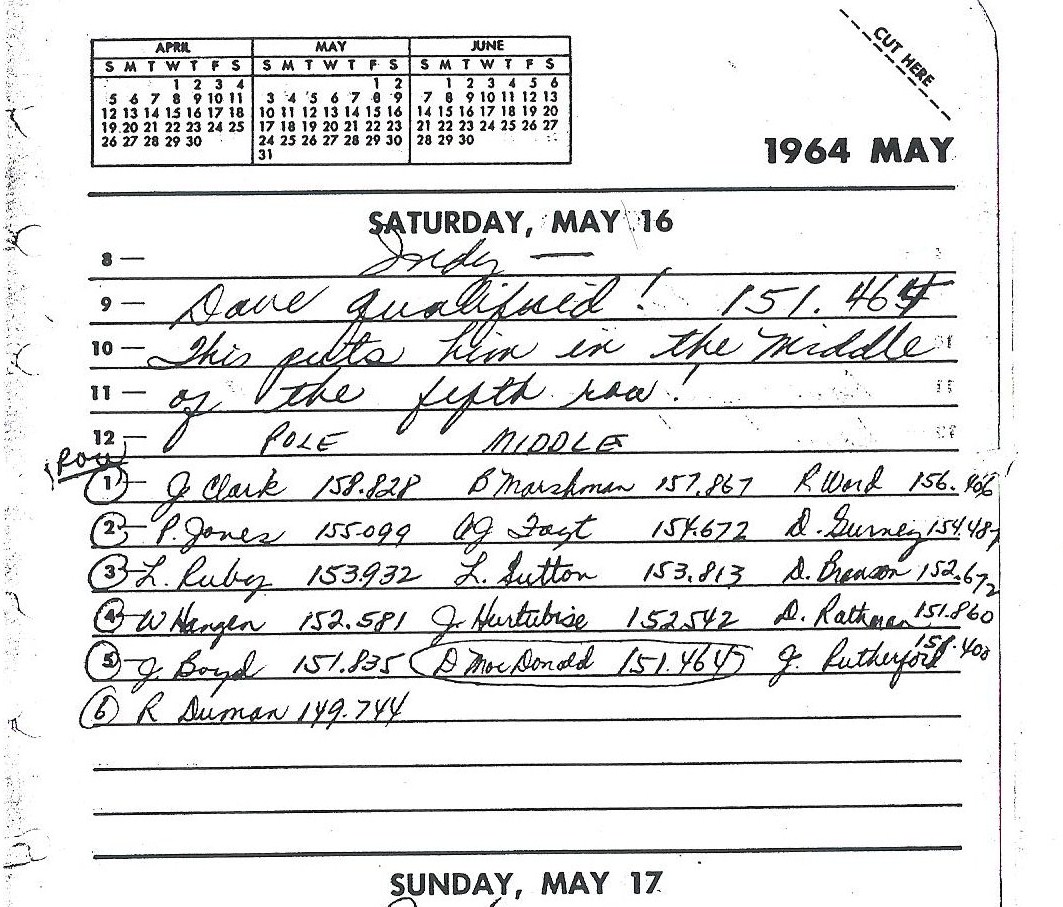 CUT HERE
APRIL MAY JUNE
S M T W T F S S M T W T F S S M T W T F S
1 2 3 4 1 2 1 2 3 4 5 6
5 6 7 8 9 10 11 3 4 5 6 7 8 9 7 8 9 10 11 12 13
12 13 14 15 16 17 18 10 11 12 13 14 15 16 14 15 16 17 18 19 20
19 20 21 22 23 24 25 17 18 19 20 21 22 23 21 22 23 24 25 26 27
26 27 28 29 30 24 25 26 27 28 29 30 28 29 30
31
1964 MAY
SATURDAY, MAY 16
8 — Indy —
9 — Dave qualified! 151.464
10 — This puts him in the middle
11 — of the fifth row!
12 — POLE MIDDLE
Row
1 — J. Clark 158.828 B Marshman 157.867 R Ward 156.406
2 — P. Jones 155.099 AJ Foyt 154.672 D. Gurney 154.487
3 — L. Ruby 153.932 L. Sutton 153.813 D. Branson 152.672
4 — W Hangen 152.581 J. Hurtubise 152.542 D. Rathman 151.860
5 — J. Boyd 151.835 D MacDonald 151.464 J. Rutherford 151.400
6 R Duman 149.744
SUNDAY, MAY 17